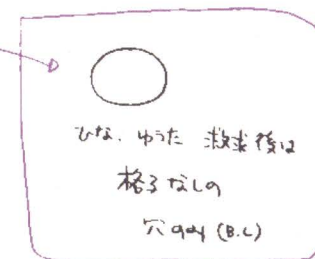 ひな、ゆうた 救出後は
格子なしの
穴 (B.C)